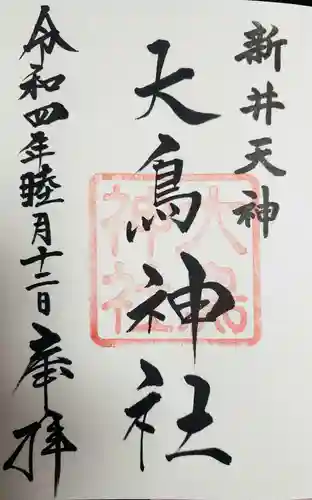 新井天神
大鳥神社
大鳥神社
令和四年睦月十二日奉拝